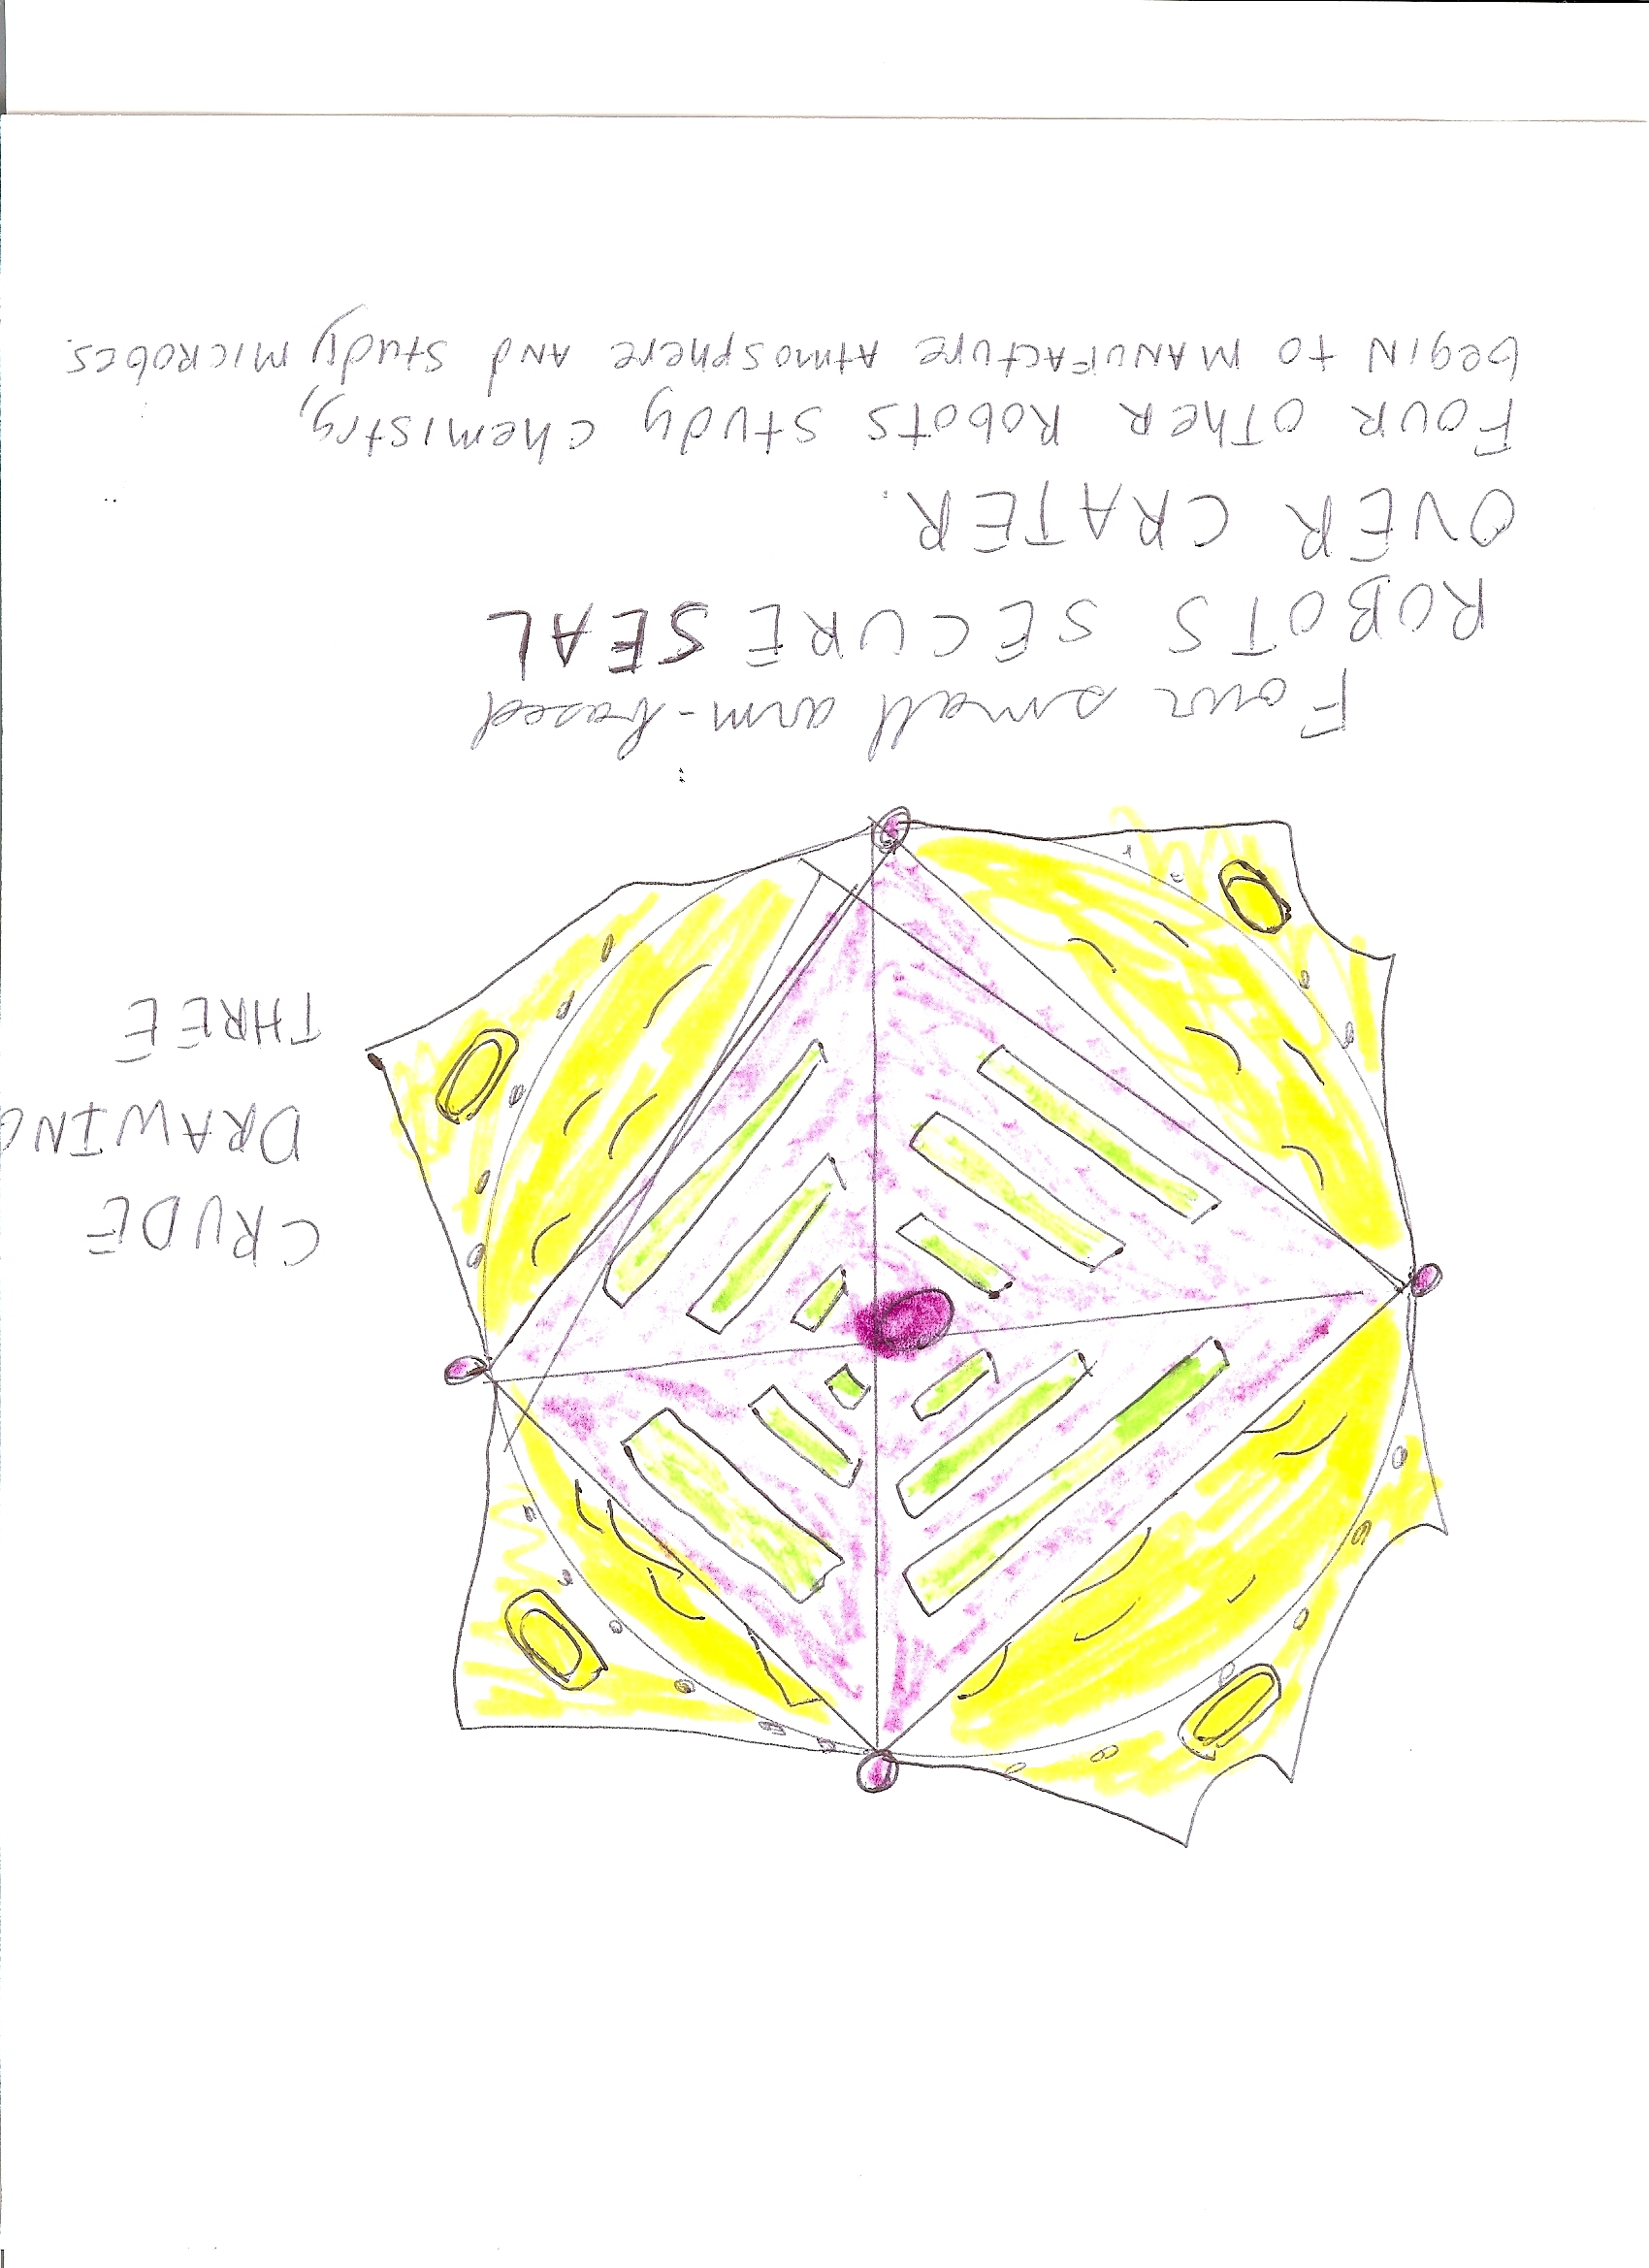 CRUDE
DRAWING
THREE
Four small arm-based
ROBOTS SECURE SEAL
OVER CRATER.
FOUR OTHER ROBOTS STUDY chemistry,
begin to MANUFACTURE AtmospHere AND Study MICROBES.